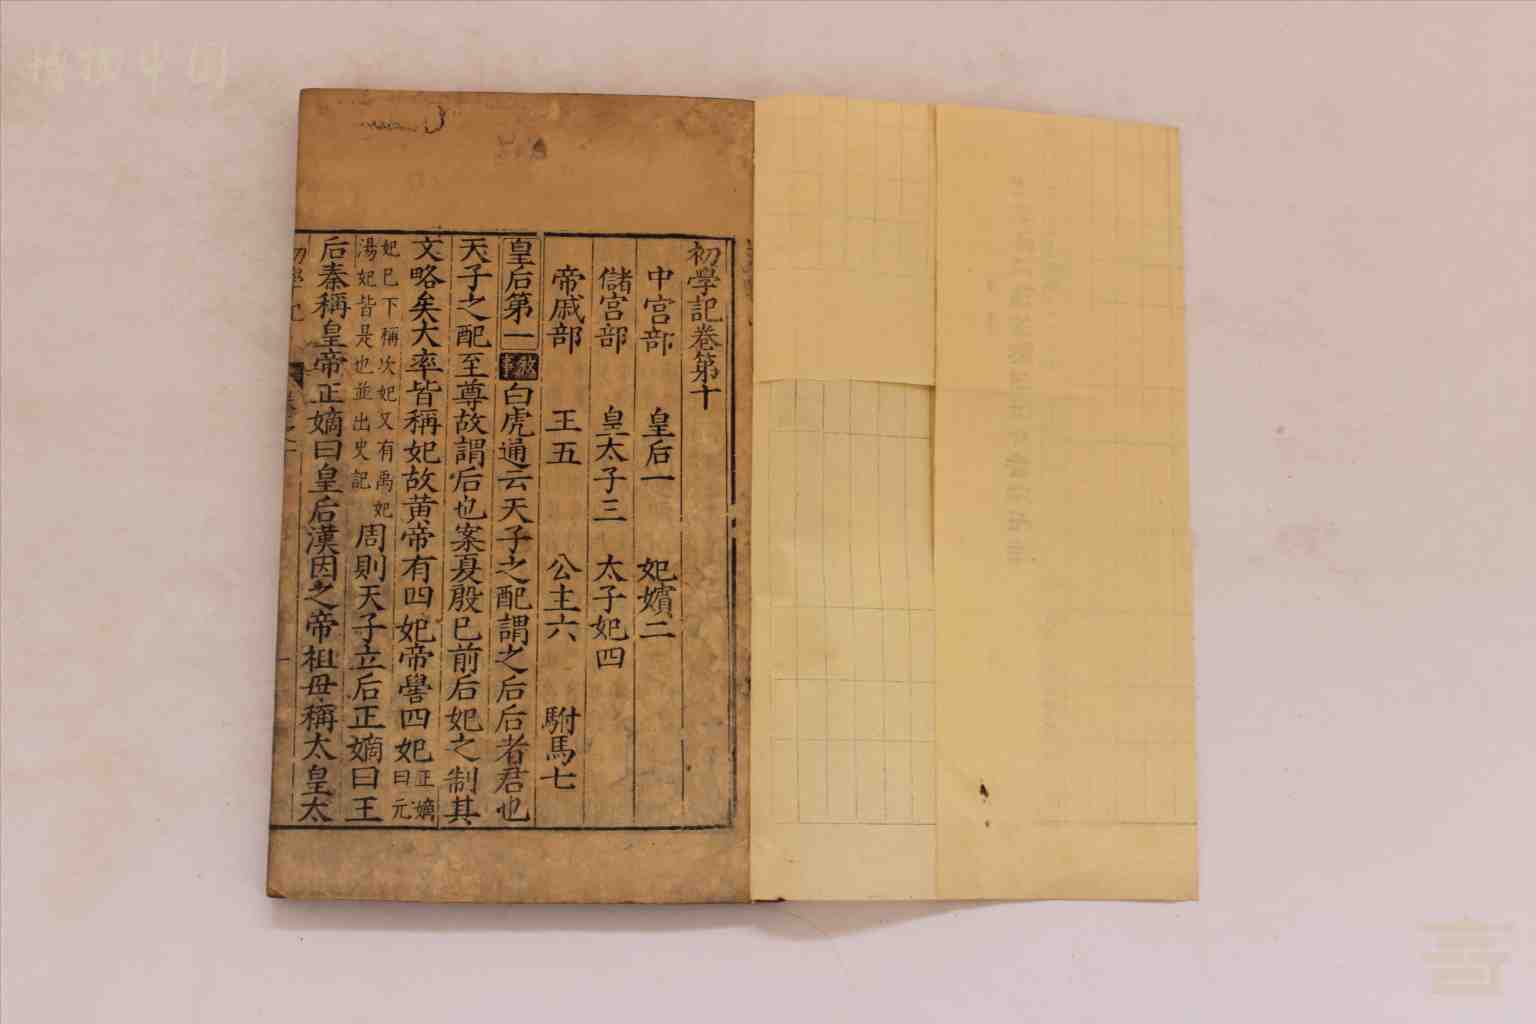 初學記卷第十
中宮部 皇后一 妃嬪二
儲宮部 皇太子三 太子妃四
帝戚部 王五 公主六 駙馬七
皇后第一 敘事 白虎通云天子之配謂之后后者君也
天子之配至尊故謂后也案夏殷已前后妃之制其
文略矣大率皆稱妃故黄帝有四妃帝嚳四妃正嫡曰元
妃已下稱次妃又有禹妃湯妃皆是也並出史記周則天子立后正嫡曰王
后秦稱皇帝正嫡曰皇后漢因之帝祖母稱太皇太